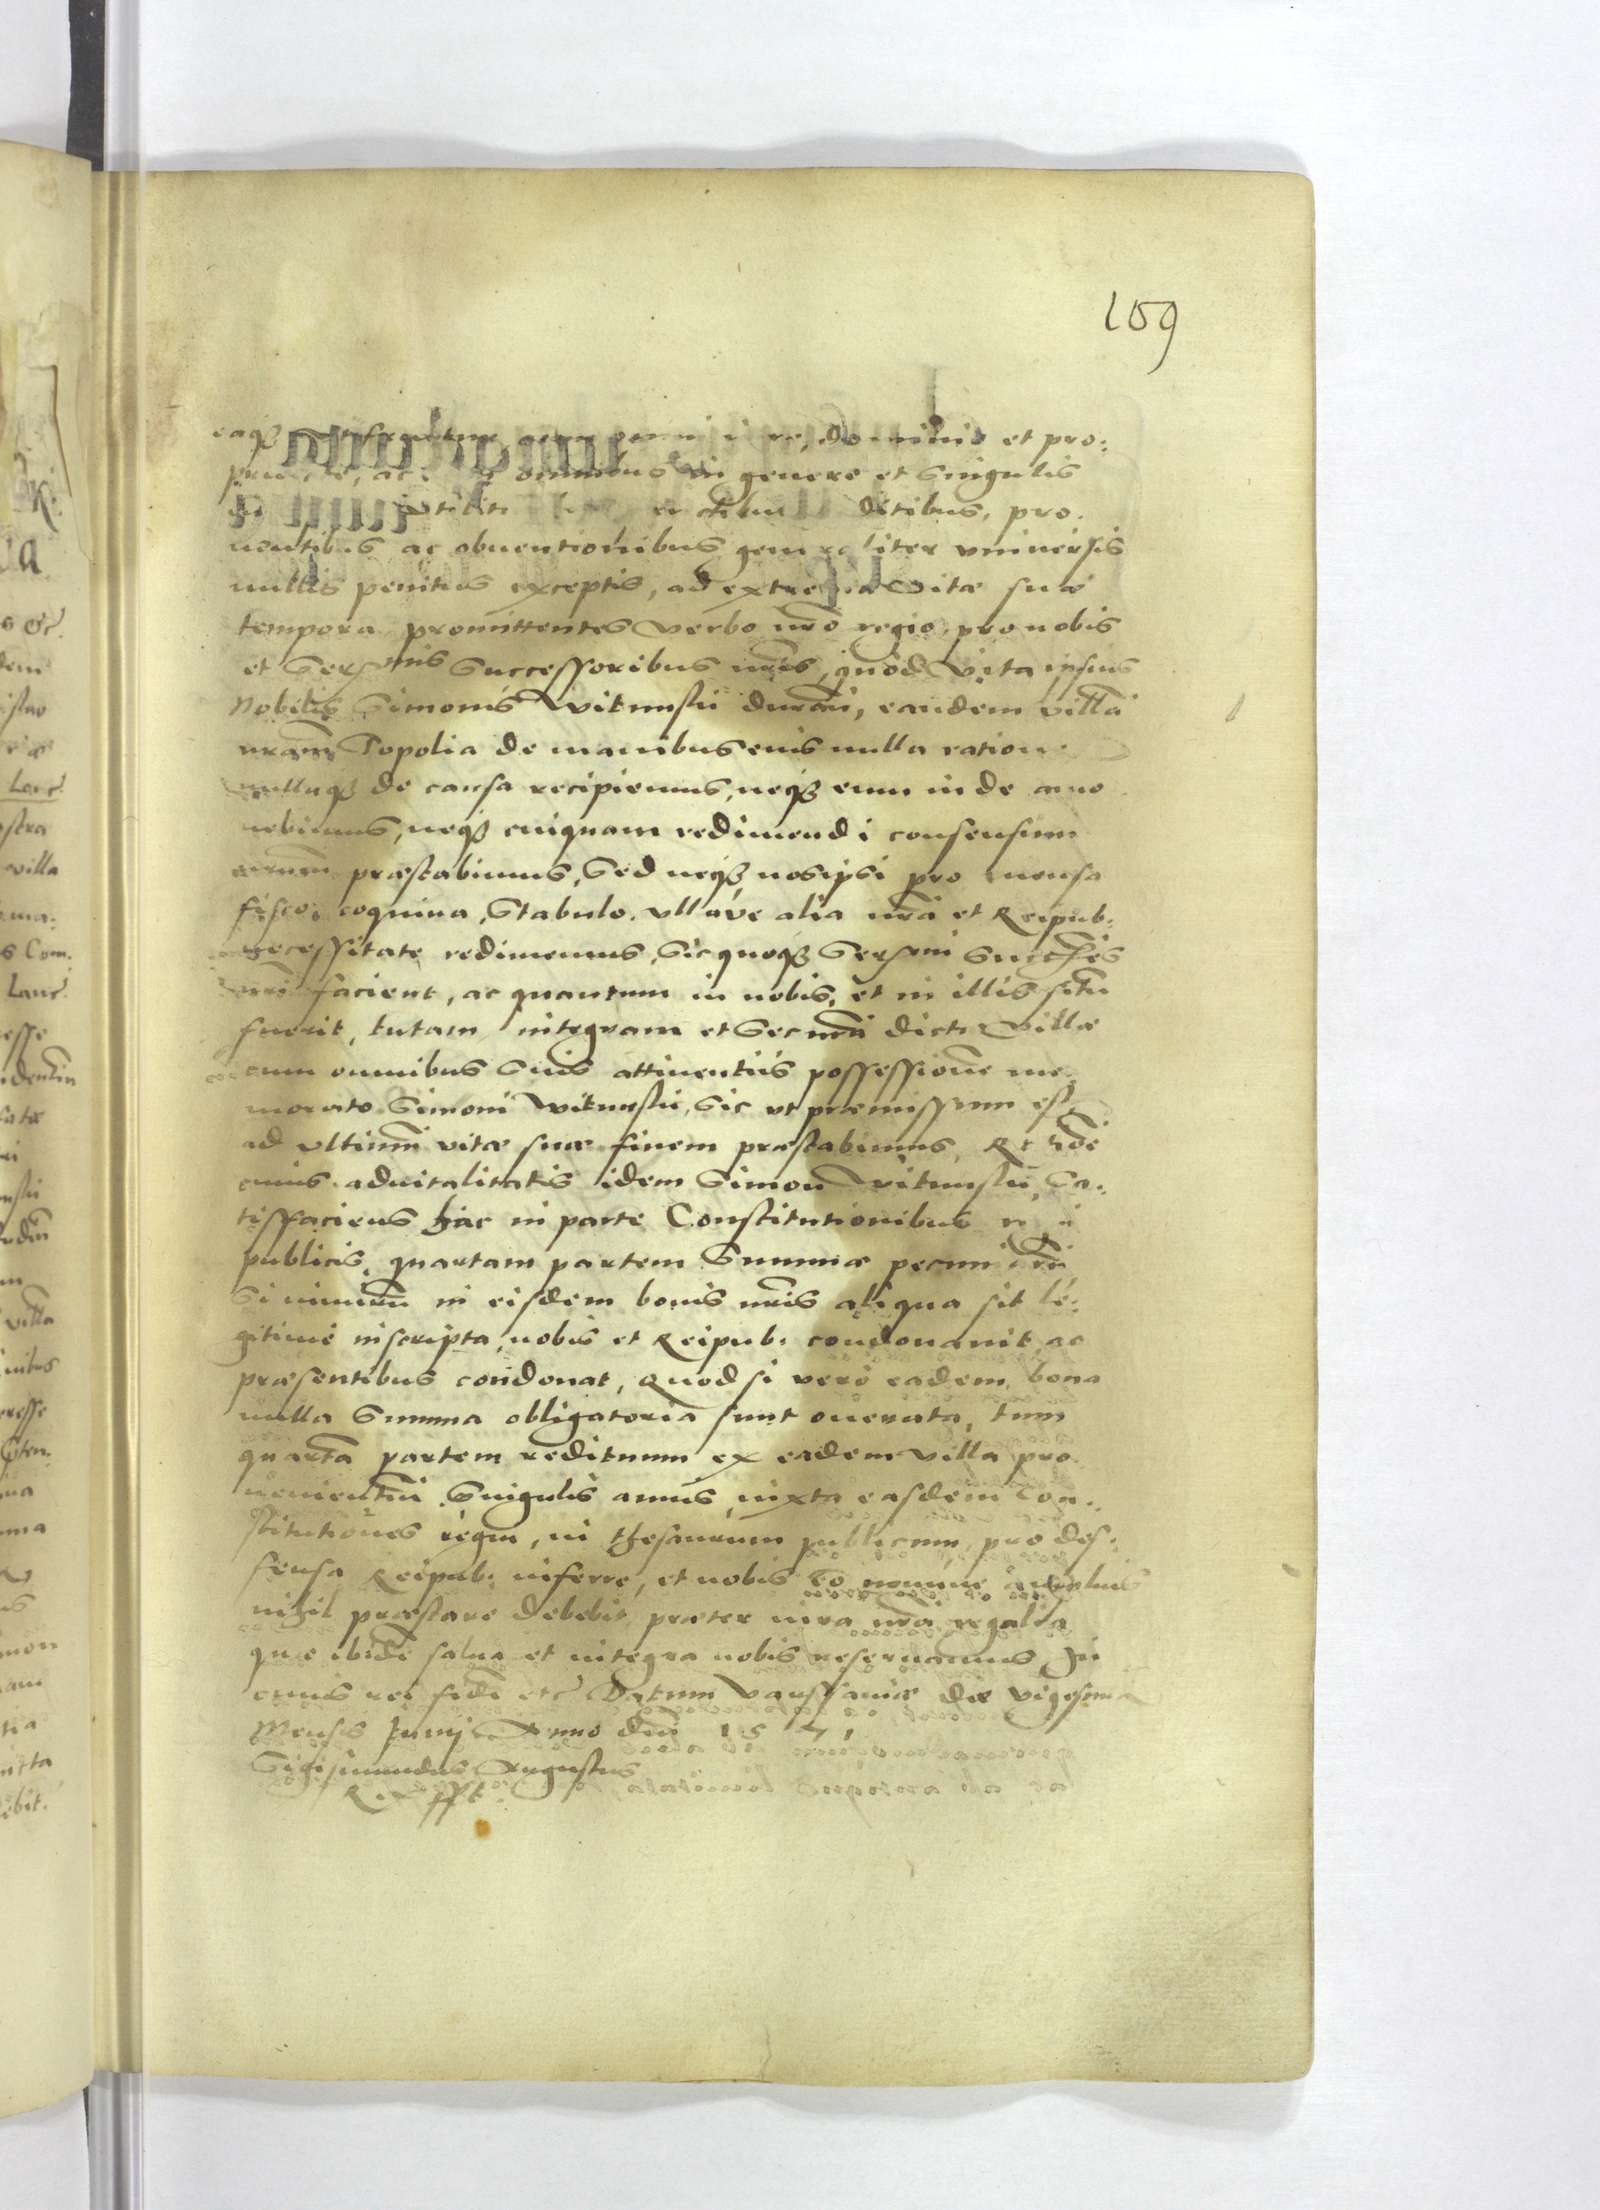 159
eaq̃ utifruetur cum omni iure, dominio et pro:
prietate, ac omnibus in genere et singulis
utilit ditibus, pro.
uentibus ac obuentionibus generaliter vniuersis
nullis penitus exceptis, ad extrema vitæ suæ
tempora promittentes verbo nr̃o regio, pro nobis
et Sermis Successoribus nr̃is, quod vita ipsius
Nobilis Simonis Witunsķi durañ, eandem villã
nrãm Topolia de manibus eius nulla ratione
nullaq̃ de causa recipiemus, neq̃ eum inde amo
uebimus, neq̃ cuiquam redimendi consensum
nrum præstabimus, Sed neq̃ nosipsi pro mensa
fisco, coquina, Stabulo, vllave alia nr̃a et Reipub:
necessitate redimemus, Sic quoq̃ Sermi Succẽs
nr̃i facient, ac quantum in nobis, et in illis sitũ
fuerit, tutam integram et Securã dictæ Villæ
cum omnibus Suis attinentiis possessionẽ me
morato Simoni Witunsķi, Sic vt præmissum est
ad vltimũ vitæ suæ finem præstabimus,
cuius aduitalitatis idem Simon Witunsķi, Sa:
tisfaciens hac in parte Constitutionibus regni
publicis, quartam partem Summæ pecuniarũ
Si nimirũ in eisdem bonis nr̃is aliqua sit le:
gitimè inscripta, nobis et Reipub: condonauit, ac
præsentibus condonat, Quod si verò eadem bona
nulla Summa obligatoria sunt onerata, tum
quartã partem redituum ex eadem villa pro
uenientiũ Singulis annis, iuxta easdem Con:
stitutiones regni, in thesaurum publicum, pro def:
fensa Reipub: inferre, et nobis eo nomine amplius
nihil præstare debebit, præter iura nr̃a regalia
quæ ibidẽ salua et integra nobis reseruamus In
cuius rei fidẽ etc Datum Varssauiæ die vigesima
Mensis Junij Anno Dñi 1571
Sigismundus Augustus
Rex sst